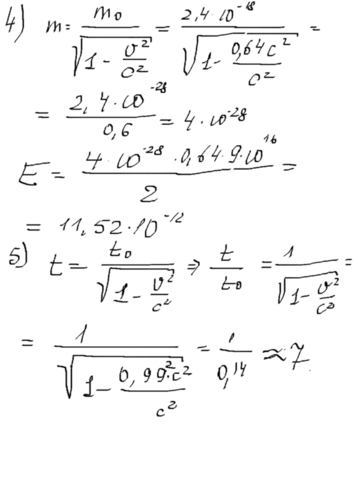 4) m = m₀ / √(1 - υ²/c²) = 2,4·10⁻²⁸ / √(1 - 0,64c²/c²) =
= 2,4·10⁻²⁸ / 0,6 = 4·10⁻²⁸
E = 4·10⁻²⁸·0,64·9·10¹⁶ / 2 =
= 11,52·10⁻¹²
5) t = t₀ / √(1 - υ²/c²) ⇒ t/t₀ = 1 / √(1 - υ²/c²) =
= 1 / √(1 - 0,99²·c²/c²) = 1/0,14 ≈ 7